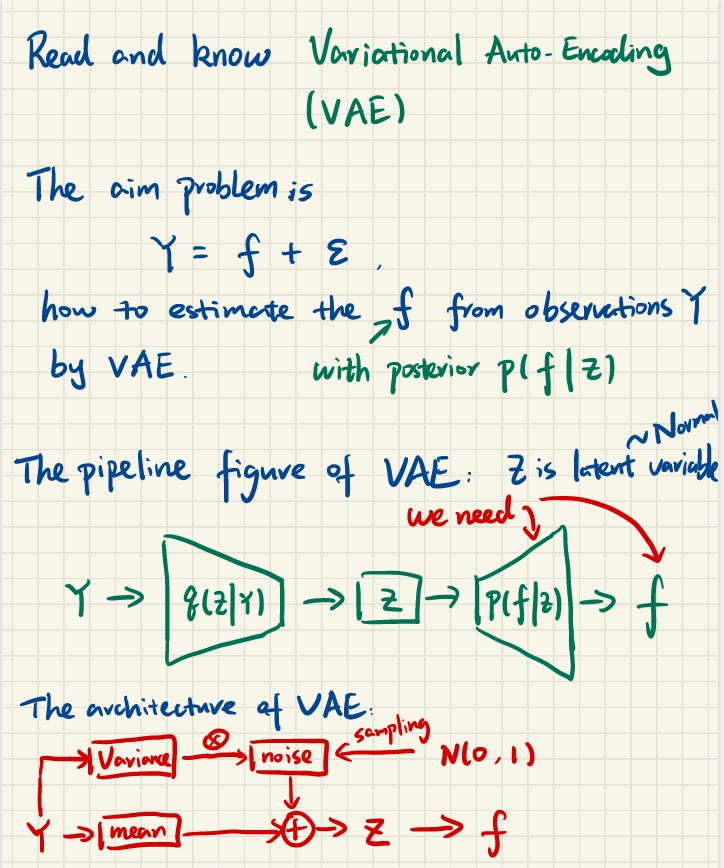 Read and know Variational Auto-Encoding
(VAE)
The aim problem is
Y = f + ε,
how to estimate the f from observations Y
by VAE. with posterior p(f|z)
~ Normal
The pipeline figure of VAE: Z is latent variable
we need
Y → q(z|Y) → Z → p(f|z) → f
The architecture of VAE:
Variance ⊗ noise sampling N(0, 1)
Y → mean → ⊕ → Z → f